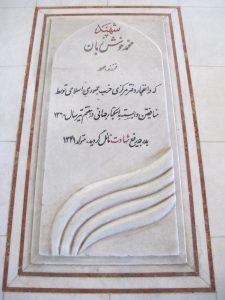 شهید
محمد خوش زبان
فرزند: محمد
که در انفجار دفتر مرکزی حزب جمهوری اسلامی توسط
منافقین وابسته به استکبار جهانی در هفتم تیر سال ۱۳۶۰
بدرجه رفیع شهادت نائل گردید. تولد ۱۳۴۱